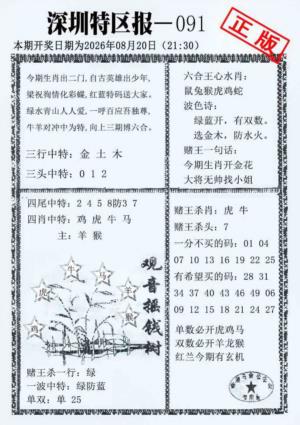 深圳特区报—091
正版
本期开奖日期为2026年08月20日（21:30）
今期生肖出二门,自古英雄出少年,
梁祝殉情化彩蝶,红蓝特码送大家。
绿水青山人人爱,一呼百应吾独尊,
牛羊对冲中为特,向上三期博六合。
三行中特：金 土 木
三头中特：0 1 2
六合王心水肖：
鼠兔猴虎鸡蛇
波色诗：
绿蓝开，有双数。
选金木，防水火。
赌王一句话：
今期生肖开金花
大将无帅找小姐
四尾中特：2 4 5 8防3 7
四肖中特：鸡 虎 牛 马
主：羊 猴
观音摇钱树
赌王杀一行：绿
一波中特：绿防蓝
单双：单 25
赌王杀肖：虎 牛
赌王杀头：7
一分不买的码：01 04
07 10 13 16 19 22 25
有希望买的码：28 31
34 37 40 43 46 49 06
09 12 15 18 21 24 27
单数必开虎鸡马
双数必开羊龙猴
红兰今期有玄机